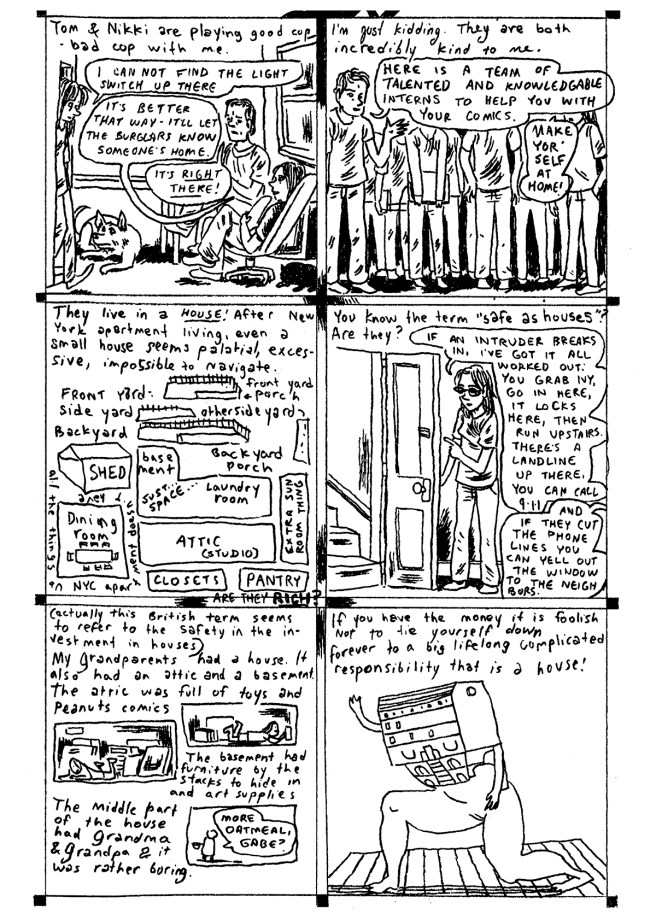 Tom & Nikki are playing good cop
- bad cop with me.
I CAN NOT FIND THE LIGHT
SWITCH UP THERE
IT'S BETTER
THAT WAY - IT'LL LET
THE BURGLARS KNOW
SOMEONE'S HOME.
IT'S RIGHT
THERE!
I'm just kidding. They are both
incredibly kind to me.
HERE IS A TEAM OF
TALENTED AND KNOWLEDGABLE
INTERNS TO HELP YOU WITH
YOUR COMICS.
MAKE
YOR'
SELF
AT
HOME!
They live in a HOUSE! After New
York apartment living, even a
small house seems palatial, exces-
sive, impossible to navigate.
FRONT yard:
front yard
porch
Side yard
other side yard
Backyard
Backyard
porch
SHED
base
ment
JUST...
SPACE...
Laundry
room
EXTRA SUN
ROOM THING
all the things
an NYC apart
ment doesn't
have
Dining
room
ATTIC
(STUDIO)
CLOSETS
PANTRY
ARE THEY RICH?
You know the term "safe as houses"?
Are they?
IF AN INTRUDER BREAKS
IN, I'VE GOT IT ALL
WORKED OUT:
YOU GRAB IVY,
GO IN HERE,
IT LOCKS
HERE, THEN
RUN UPSTAIRS.
THERE'S A
LANDLINE
UP THERE,
YOU CAN CALL
9-11
AND
IF THEY CUT
THE PHONE
LINES YOU
CAN YELL OUT
THE WINDOW
TO THE NEIGH
BORS.
(actually this British term seems
to refer to the safety in the in-
vestment in houses)
My grandparents had a house. It
also had an attic and a basement.
The attic was full of toys and
Peanuts comics
The basement had
furniture by the
stacks to hide in
and art supplies
The middle part
of the house
had Grandma
& Grandpa & it
was rather boring.
MORE
OATMEAL,
GABE?
If you have the money it is foolish
Not to tie yourself down
forever to a big lifelong complicated
responsibility that is a house!